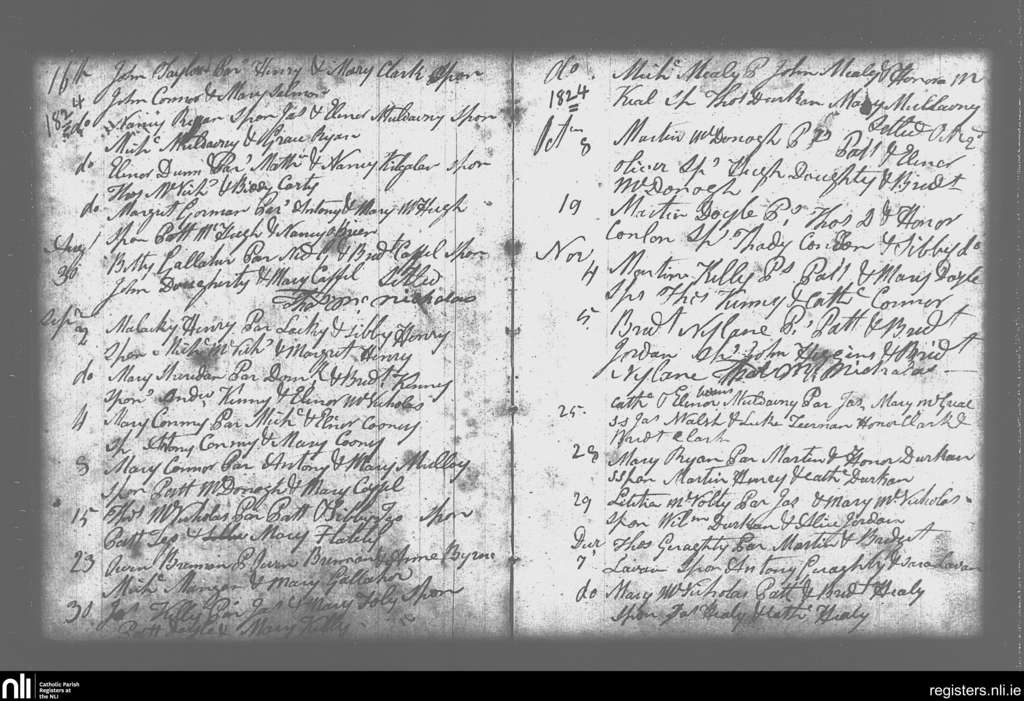 16th John Taylor Par Henry & Mary Clark Spon
John Connor & Mary
1824 do Nancy Ryan Spon Jas & Elenor Muldawny Spon
Michl Muldawny & Grace Ryan
do Elinor Dunn Par Matth & Nancy spon
Thos McNichs & Biddy Carty
do Margrit Gorman Par Antony & Mary McHugh
Spon Patt McHugh & Nancy
Aug
30 Betty Gallaher Par Nedy & Bridt Cassel Spon
John Dougherty & Mary Cassel Settled
Thos McNicholas
Septr
2 Malacky Henry Par Lacky & Sibby Henry
Spon Michl McNichs & Margrit Henry
do Mary Sheridan Par & Bridt Kenny
Spons Andw Kenny & Elinor McNicholas
4 Mary Conmy Par Michl & Elinor Cooney
Sp Antony Conmy & Mary Cooney
8 Mary Connor Par Antony & Mary Mulloy
Spon Patt McDonogh & Mary Cassel
15 Thos McNicholas Par Patt & Sibby Spon
Patt & Mary Flatly
23 Owen Brennan P Owen Brennan & Anne Byrne
Michl Mangan & Mary Gallahor
30 Jas Kelly Par Jas & Mary Foly Spon
Patt & Mary Kelly
do Michl Mealy P John Mealy & Honora M
1824 Keal Sp Thos Durkan Mary Mullawny
Settled
Octr
8 Martin McDonogh Ps Patt & Elinor
Oliver Sp Hugh Doughty & Bridt
McDonogh
19 Martin Doyle Ps Thos D & Honor
Conlon Sp Thady Conlon & Sibby do
Novr
4 Martin Kelly Ps Patt & Mary Doyle
Sps Thos Kenny & Cathe Connor
5 Bridt Nyland Ps Patt & Bridt
Jordan Sp John Higgins & Bridt
Nylane Thos McNicholas
25 Cathe & Elinor Muldawny Par Jas Mary McGreal
Jas Walsh & Luke Honor Clark &
Bridt Clark
28 Mary Ryan Par Martin & Honor Durkan
spon Martin Henry & Cath Durkan
29 Letitia McNolty Par Jas & Mary McNicholas
Spon Wilm Durkan & Jordan
Decr Thos Geraghty Par Martin & Bridget
7 Lavan Spon Antony Geraghty & Sara Lavan
do Mary McNicholas Patt & Bridt Healy
Spon Jas Healy & Cath Healy
nli
Catholic Parish
Registers at
the NLI
registers.nli.ie